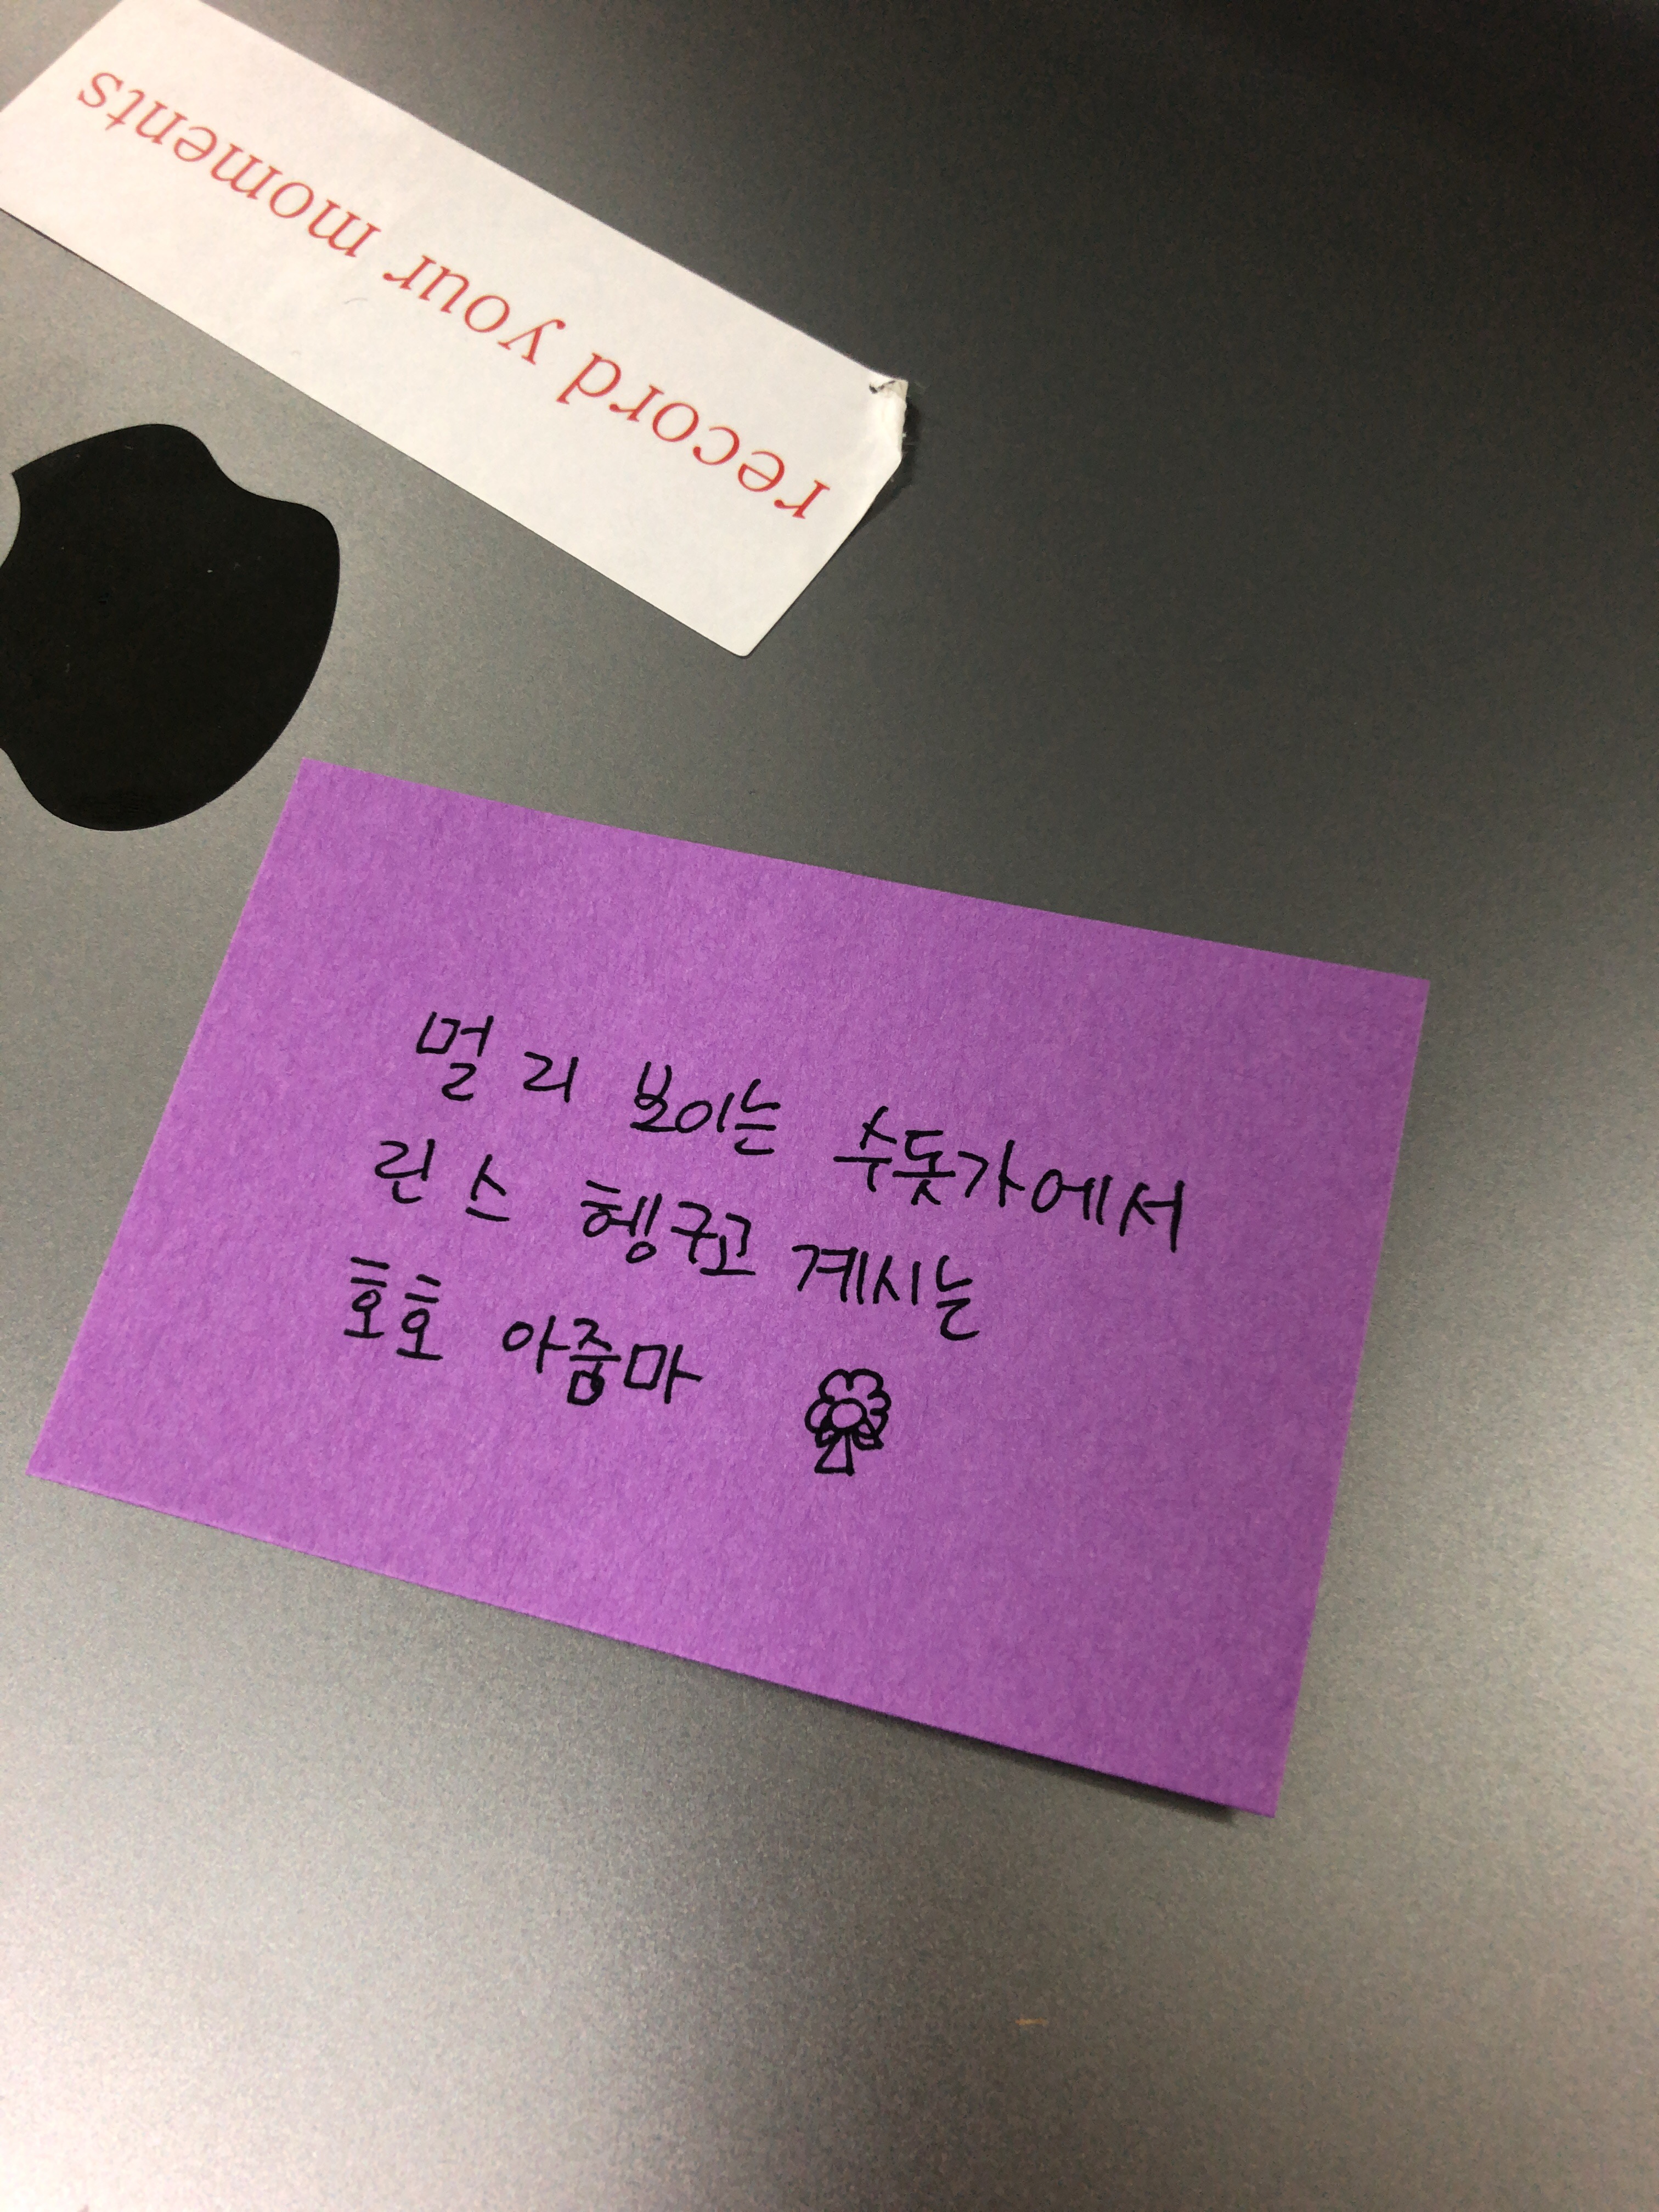 record your moments
멀리 보이는 수돗가에서
린스 헹구고 계시는
호호 아줌마